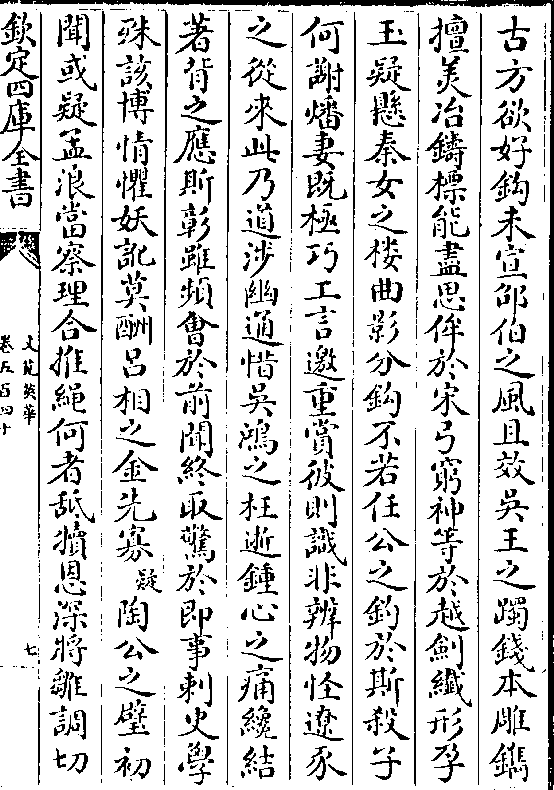 古方欲好鈎未宣邵伯之風且效吳王之躅錢本雕鐫
擅美冶鑄標能盡思侔於宋弓窮神等於越劍纎形孕
玉疑懸秦女之楼曲影分鈎不若任公之釣於斯殺子
何謝燔妻既極巧工言邀重賞彼則識非辨物怪遼豕
之從來此乃道涉幽通惜吳鴻之枉逝鍾心之痛纔結
著背之應斯彰雖頻會於前聞終取驚於即事刺史學
殊該博情懼妖訛莫酬吕相之金先寡疑陶公之璧初
聞或疑孟浪當察理合推繩何者舐犢恩深將雛調切
欽定四庫全書
文苑英華
卷五百四十
七